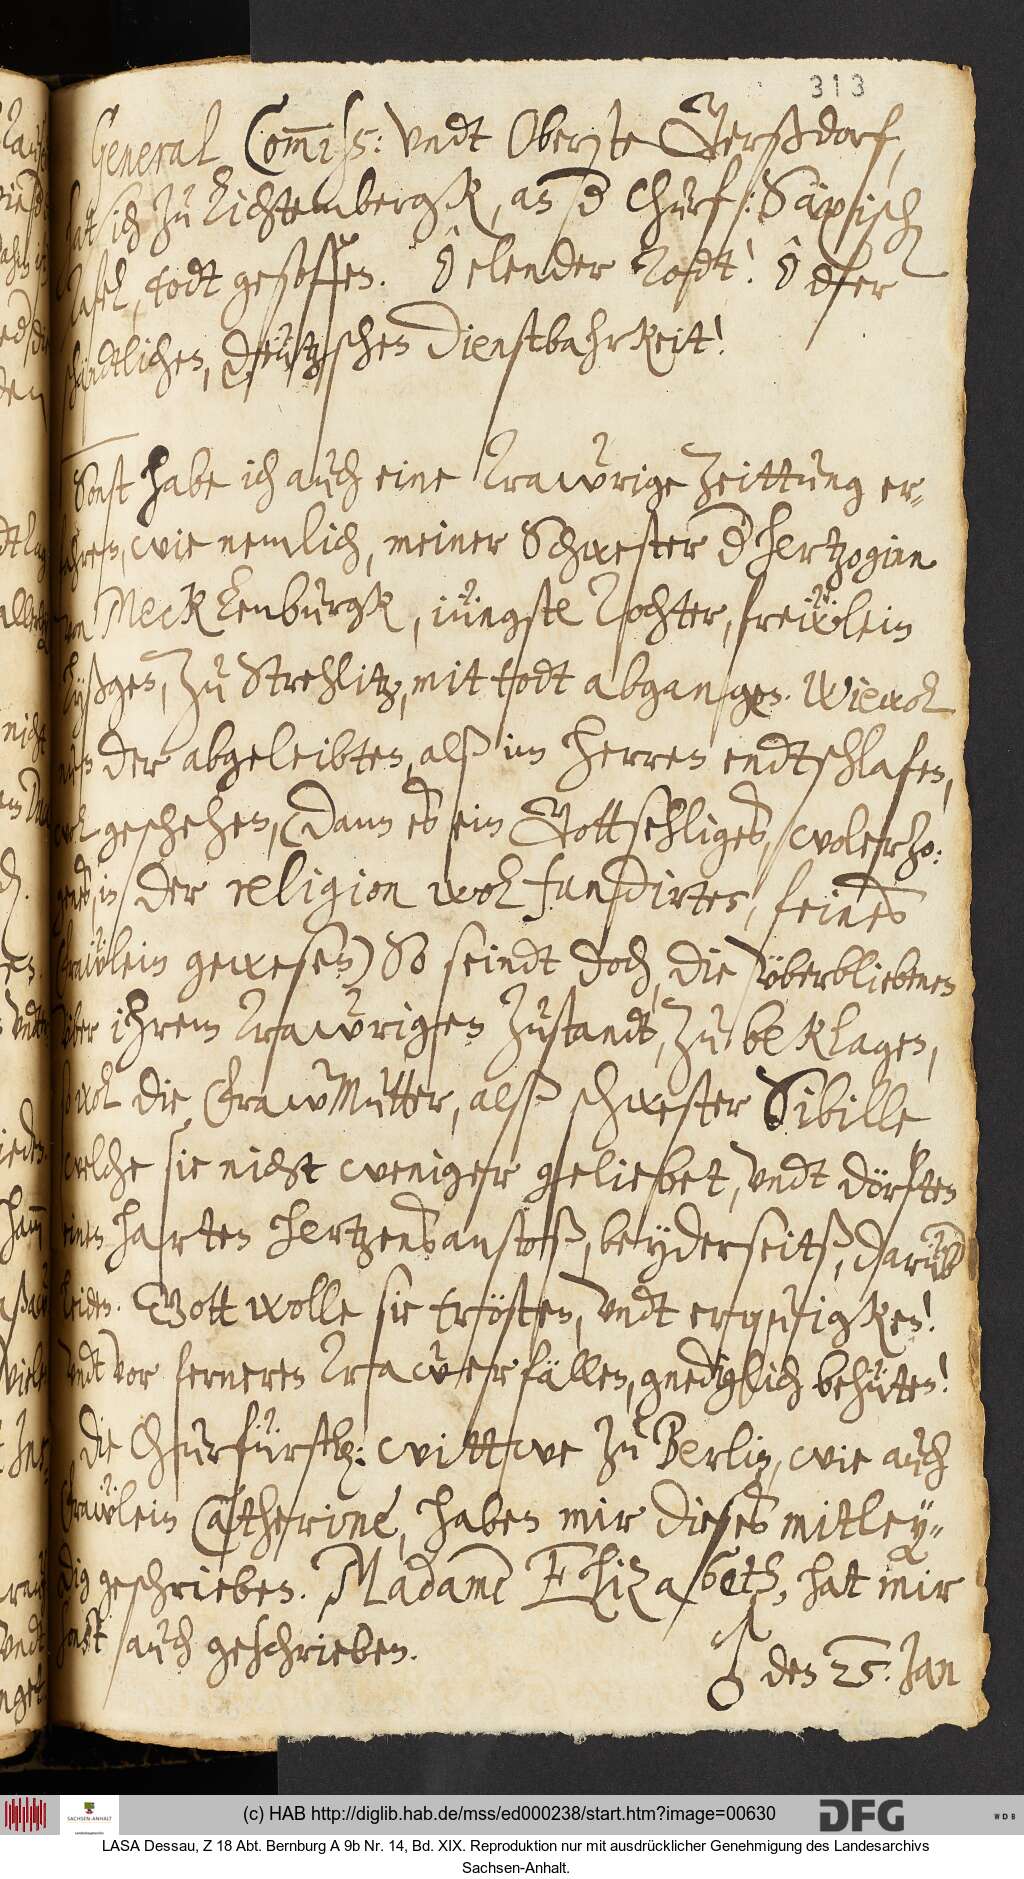 313
General Commiss: vndt Oberste Gerßdorf,
hat sich zu Lichtembergk, an d Churf: Säxisch
Tafel, todt gesoffen. ô elender Todt! ô der
schändtlichen, deützschen dienstbahrkeit!
Sonst habe ich auch eine Trawrige zeittung er-
fahren, wie nemlich, meiner Schwester d hertzoginn
von Mecklenburgk, iüngste Tochter, frewlein
zu Strehlitz, mit todt abgangen. Wiewol
nun der abgeleibten, alß im Herren endtschlafen,
wol geschehen, (dann es ein Gottsehliges, wolerzo:
genes, in der religion wol fundirtes, feines
frewlein gewesen) So seindt doch, die vberbliebenen
vber ihrem Trawrigen zustandt, zu beklagen,
so wol die FrawMutter, alß schwester Sibille
welche sie nicht weniger geliebet, vndt dörften
einen harten hertzensanstoß, beyderseitß, darüb
leiden. Gott wolle sie trösten, vndt erquigken!
vndt vor ferneren Trawerfällen, gnediglich behüten!
Die Churfürstl: wittwe zu Berlin, wie auch
Frewlein Catherine, haben mir dieses mitley-
dig geschrieben. Madame Elizabeth, hat mir
sonst auch geschrieben.
♂ den 25. Jan
(c) HAB http://diglib.hab.de/mss/ed000238/start.htm?image=00630
SACHSEN-ANHALT
DFG
WDB
LASA Dessau, Z 18 Abt. Bernburg A 9b Nr. 14, Bd. XIX. Reproduktion nur mit ausdrücklicher Genehmigung des Landesarchivs
Sachsen-Anhalt.